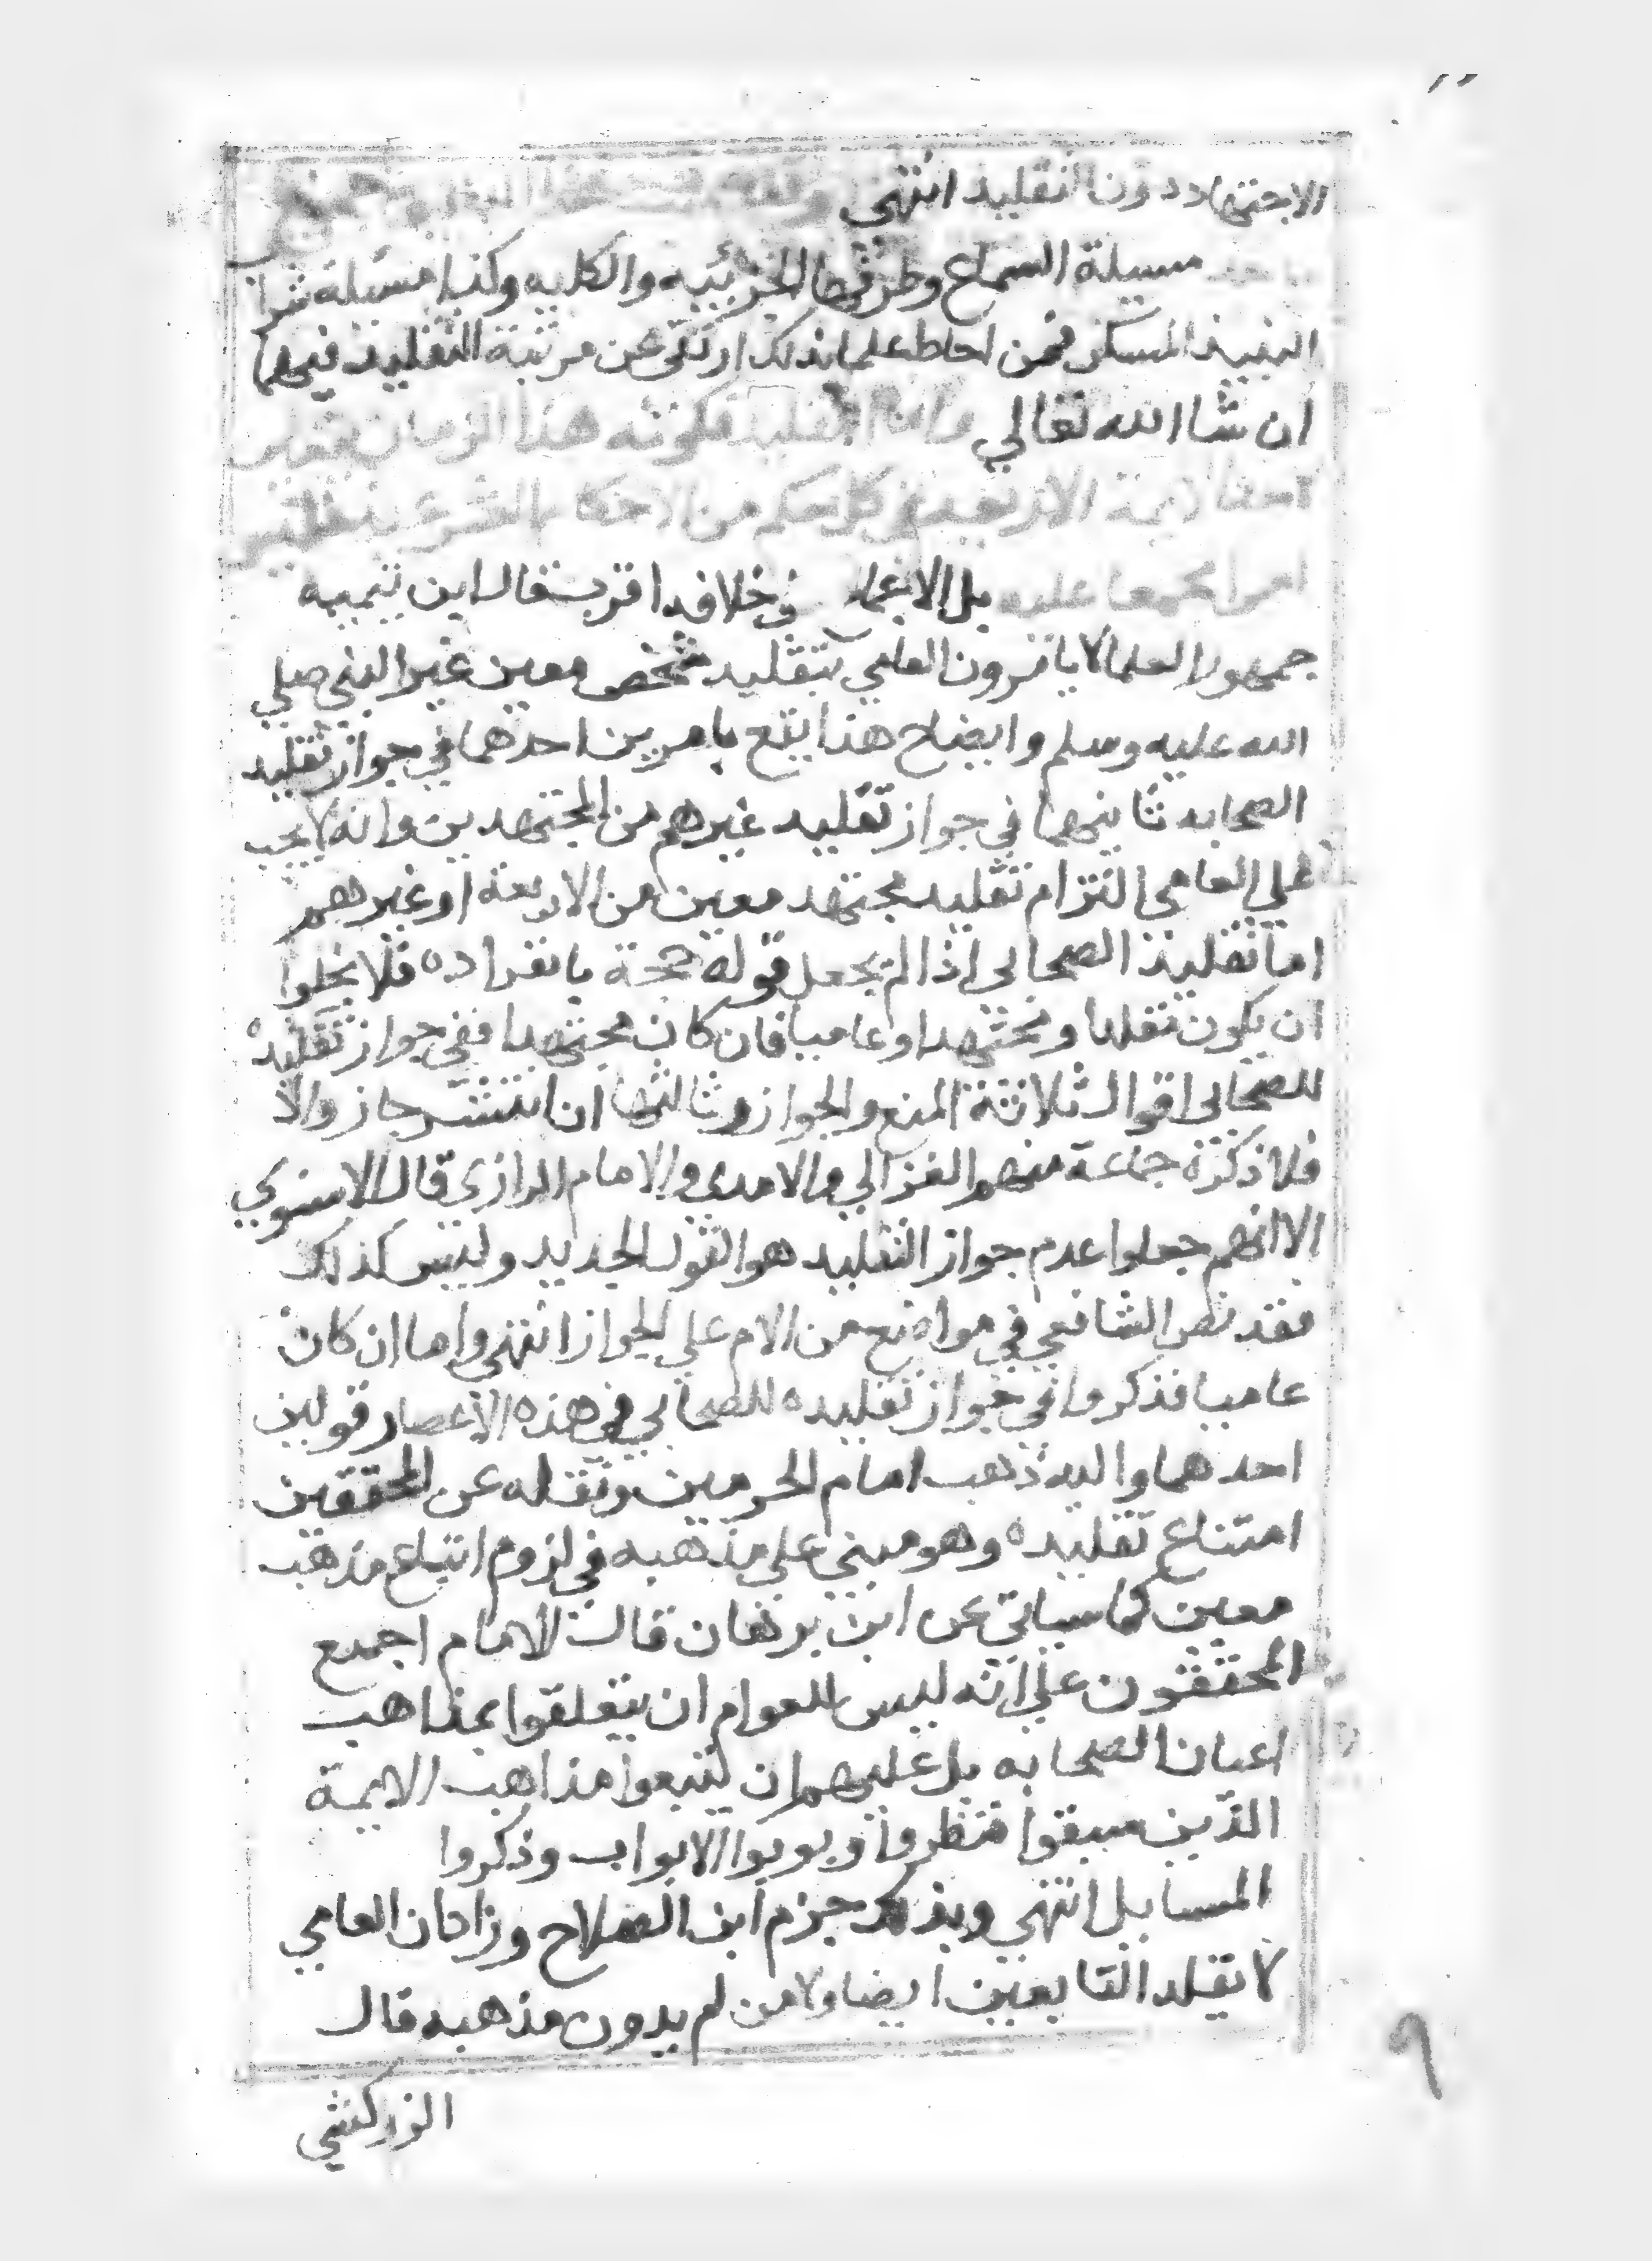 الاجتهاد دون التقليد انتهى
مسيلة السماع وطرقها الجزئيه والكليه وكذا مسئلة شراب
النبيذ المسكر فمن احاط علما بذلك ارتقى عن مرتبة التقليد فيهما
ان شا الله تعالي واما التقليد فكونه هذا الزمان يتعين
الايمة الاربعة في كل حكم من الاحكام الشرعية فليس
امرا مجمعا عليه بل الاجماع في خلافه اقرب فقال ابن تيميه
جمهور العلما لا يامرون العامي بتقليد شخص معين غير النبي صلي
الله عليه وسلم وايضاح هذا يقع بامرين احدهما في جواز تقليد
الصحابه ثانيهما في جواز تقليد غيرهم من المجتهدين وانه لا يجب
علي العامي التزام تقليد مجتهد معين من الاربعة او غيرهم
اما تقليد الصحابى اذا لم يجعل قوله حجة بانفراده فلا يخلوا
ان يكون مجتهدا او عاميا فان كان مجتهدا ففي جواز تقليده
للصحابى اقوال ثلاثة المنع والجواز وثالثها ان انتشر جاز والا
فلا ذكره جماعة منهم الغزالي والامدي والامام الرازي قال الاسنوي
الا انهم جعلوا عدم جواز التقليد هو القول الجديد وليس كذلك
فقد نص الشافعي في مواضع من الام علي الجواز انتهى واما ان كان
عاميا فذكروا في جواز تقليده للصحابي في هذه الاعصار قولين
احدهما واليه ذهب امام الحرمين ونقله عن المحققين
امتناع تقليده وهو مبني علي مذهبه في لزوم اتباع مذهب
معين كما سياتي عن ابن برهان قال الامام اجمع
المحققون علي انه ليس للعوام ان يتعلقوا بمذاهب
اعيان الصحابه بل عليهم ان يتبعوا مذاهب الايمة
الذين سبقوا فنظروا وبوبوا الابواب وذكروا
المسايل انتهي وبذلك جزم ابن الصلاح وزاد ان العامي
لا يقلد التابعين ايضا ولا من لم يدون مذهبه قال
الزركشي
٩